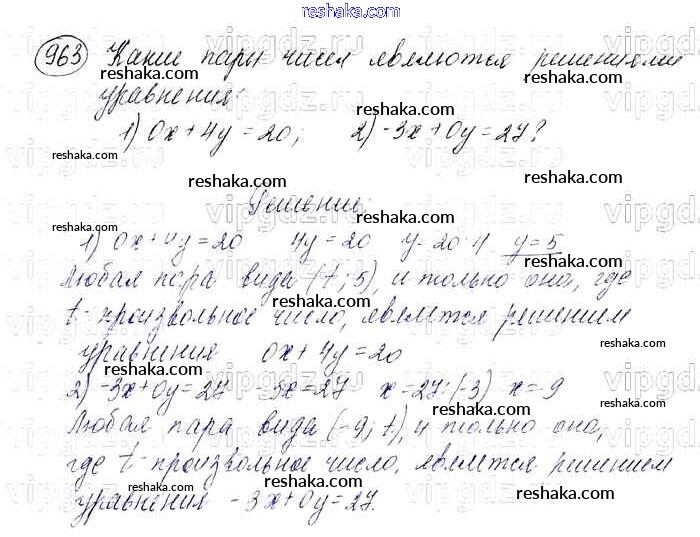 reshaka.com
963 Какие пары чисел являются решениями
reshaka.com reshaka.com reshaka.com
уравнения:
reshaka.com
1) 0x + 4y = 20; 2) -3x + 0y = 27?
reshaka.com reshaka.com reshaka.com
reshaka.com reshaka.com
Решение:
reshaka.com reshaka.com reshaka.com
1) 0x + 4y = 20 4y = 20 y = 20 : 4 y = 5
Любая пара вида (t; 5), и только она, где
reshaka.com reshaka.com
t - произвольное число, является решением
reshaka.com reshaka.com
уравнения 0x + 4y = 20
reshaka.com reshaka.com reshaka.com
2) -3x + 0y = 27 -3x = 27 x = 27 : (-3) x = -9
reshaka.com
Любая пара вида (-9; t), и только она,
reshaka.com reshaka.com
где t - произвольное число, является решением
reshaka.com reshaka.com
уравнения -3x + 0y = 27.
reshaka.com
reshaka.com